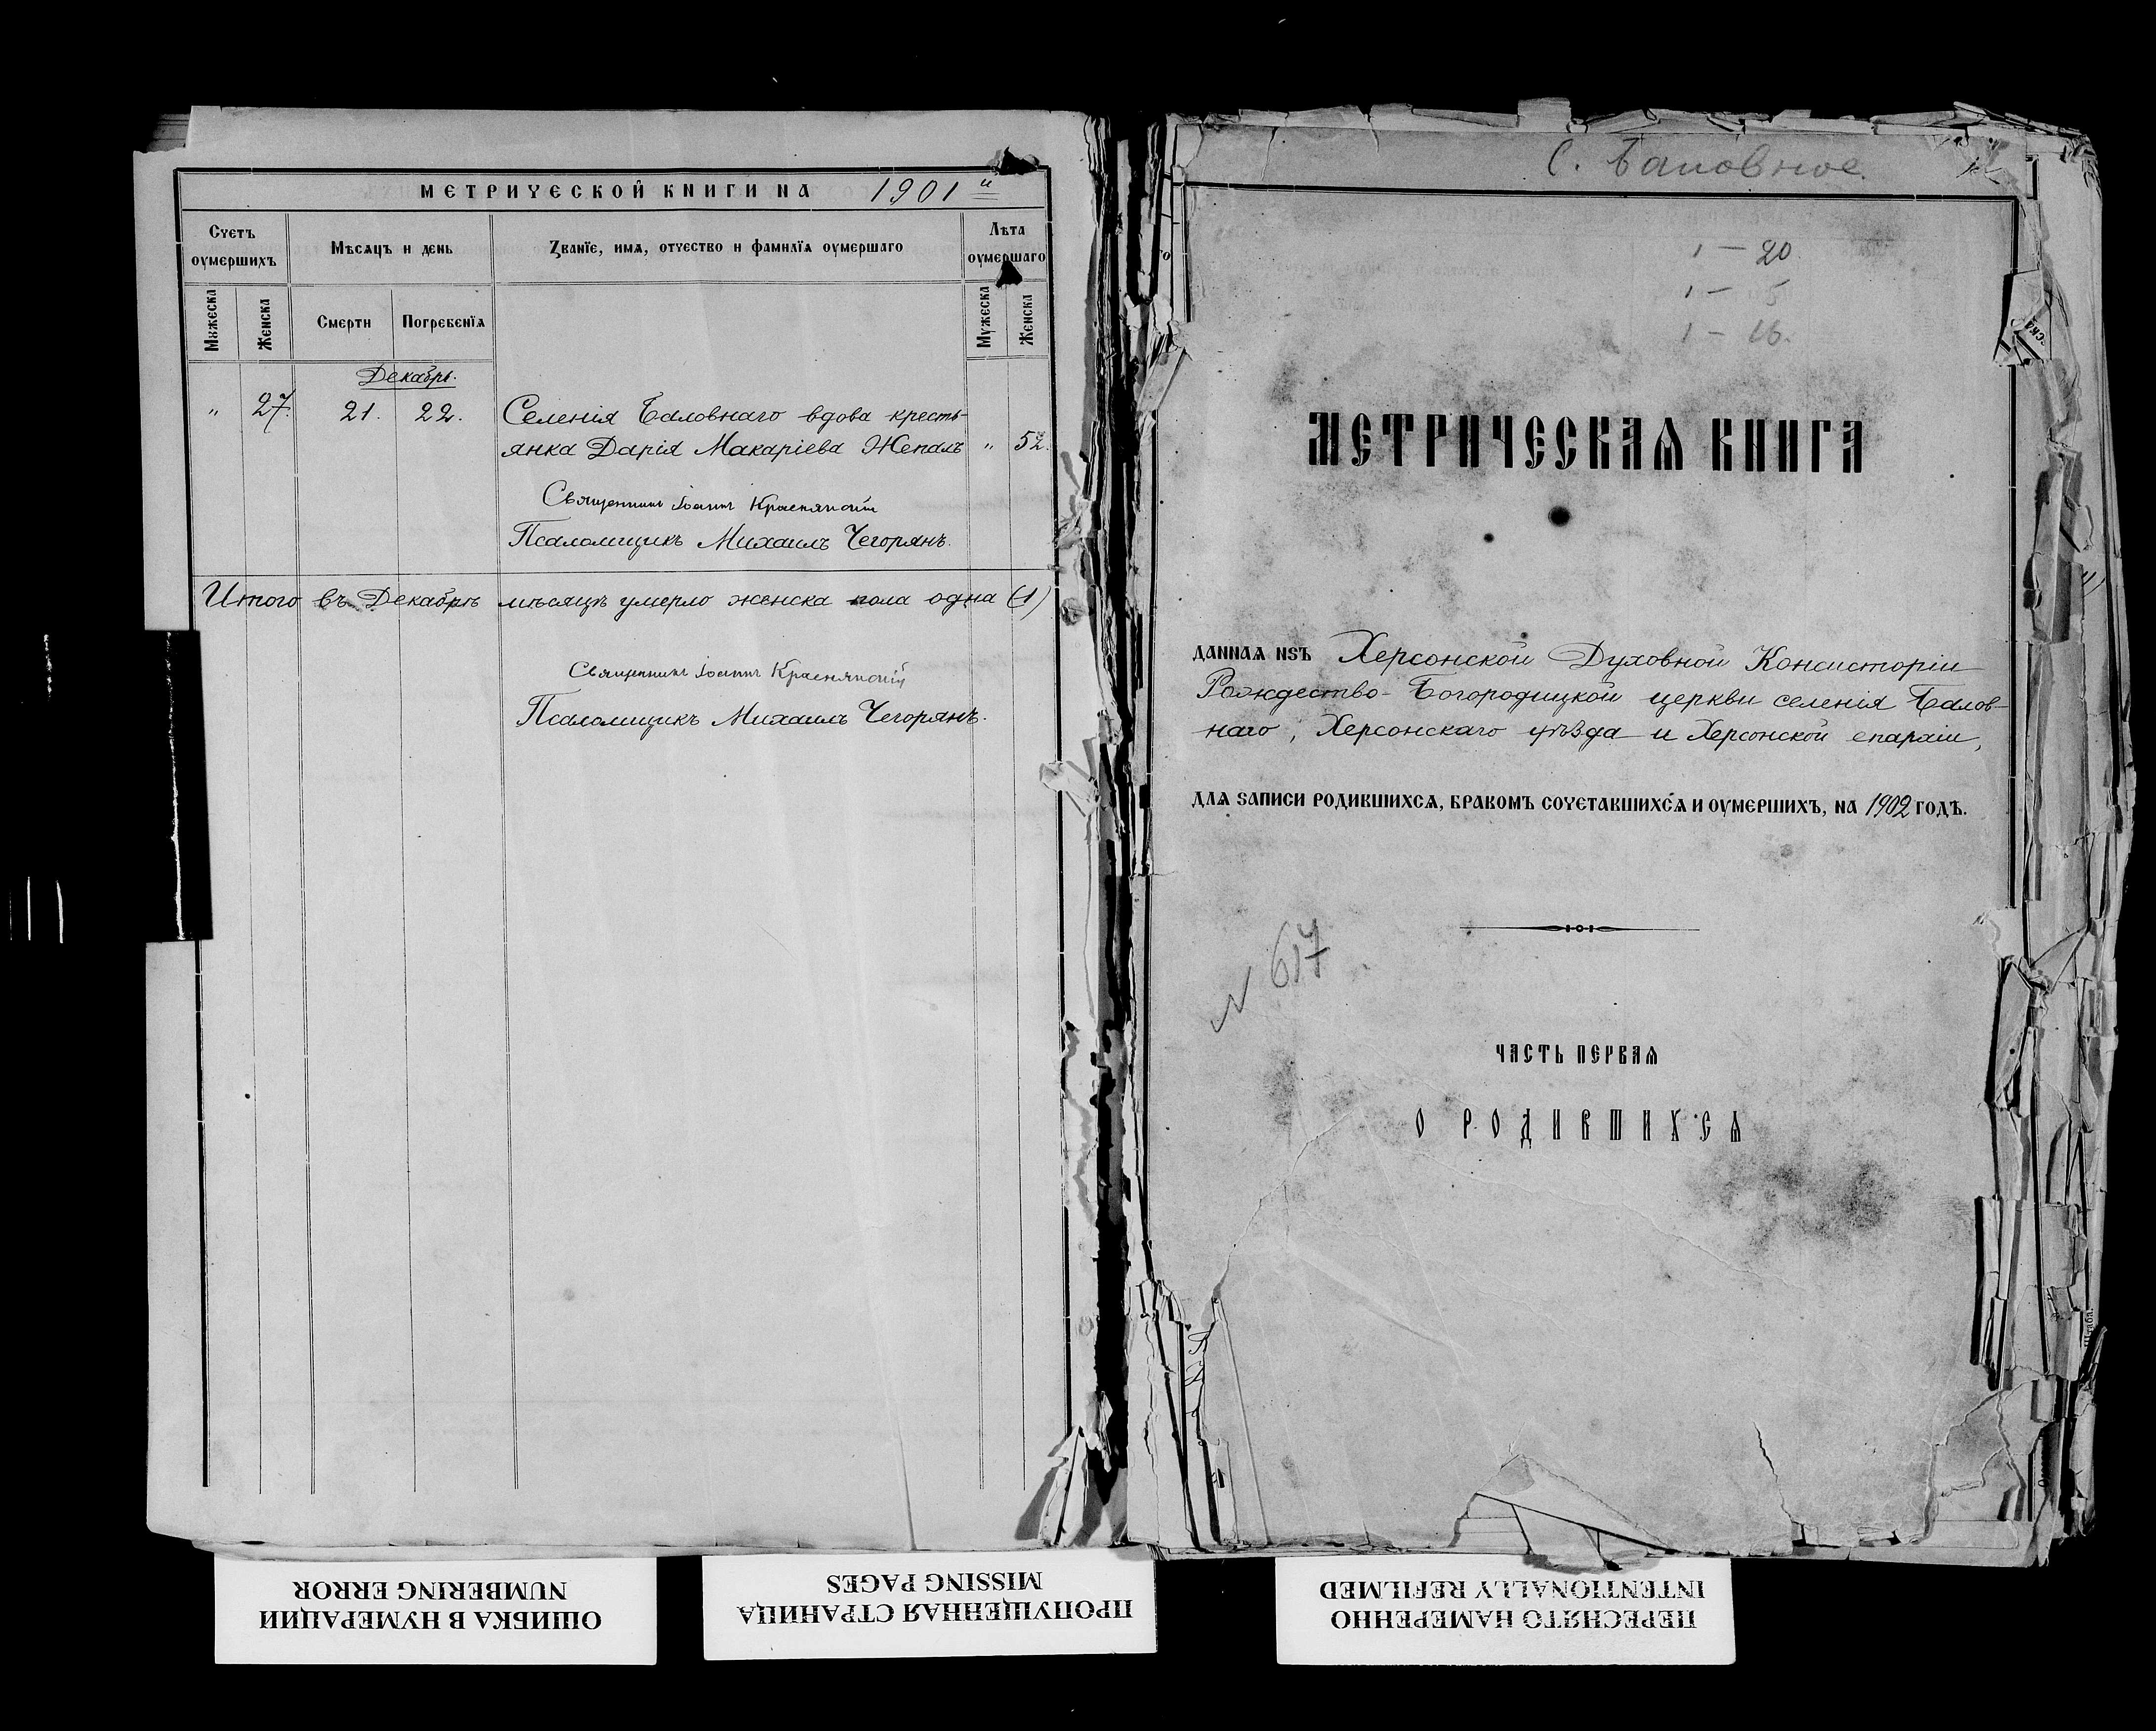 МЕТРИЧЕСКОЙ КНИГИ НА 1901 й
Счетъ оумершихъ
Мѣсяцъ и день
Званїе, имя, отчество и фамилїя оумершаго
Лѣта оумершаго
Мужеска
Женска
Смерти
Погребенїя
Мужеска
Женска
Декабрь.
" 27. 21. 22. Селенія Баловнаго вдова кресть-
янка Дарія Макаріева Жепалъ " 52.
Священникъ Іоаннъ
Псаломщикъ Михаилъ Чегорянъ.
Итого въ Декабрѣ мѣсяцѣ умерло женска пола одна (1)
Священникъ Іоаннъ
Псаломщикъ Михаилъ Чегорянъ.
С. Баловное
1 – 20.
1 – 5
1 – 26.
МЕТРИЧЕСКАѦ КНИГА
ДАННАѦ ИЗЪ Херсонской Духовной Консисторіи
Рождество-Богородицкой церкви селенія Балов-
наго, Херсонскаго уѣзда и Херсонской епархіи,
ДЛѦ ЅАПИСИ РОДИВШИХСѦ, БРАКОМЪ СОЧЕТАВШИХСѦ И ОУМЕРШИХЪ, НА 1902 ГОДЪ.
N 617
ЧАСТЬ ПЕРВАѦ
О РОДИВШИХСѦ
ОШИБКА В НУМЕРАЦИИ
NUMBERING ERROR
ПРОПУЩЕННАЯ СТРАНИЦА
MISSING PAGES
ПЕРЕСНЯТО НАМЕРЕННО
INTENTIONALLY REFILMED